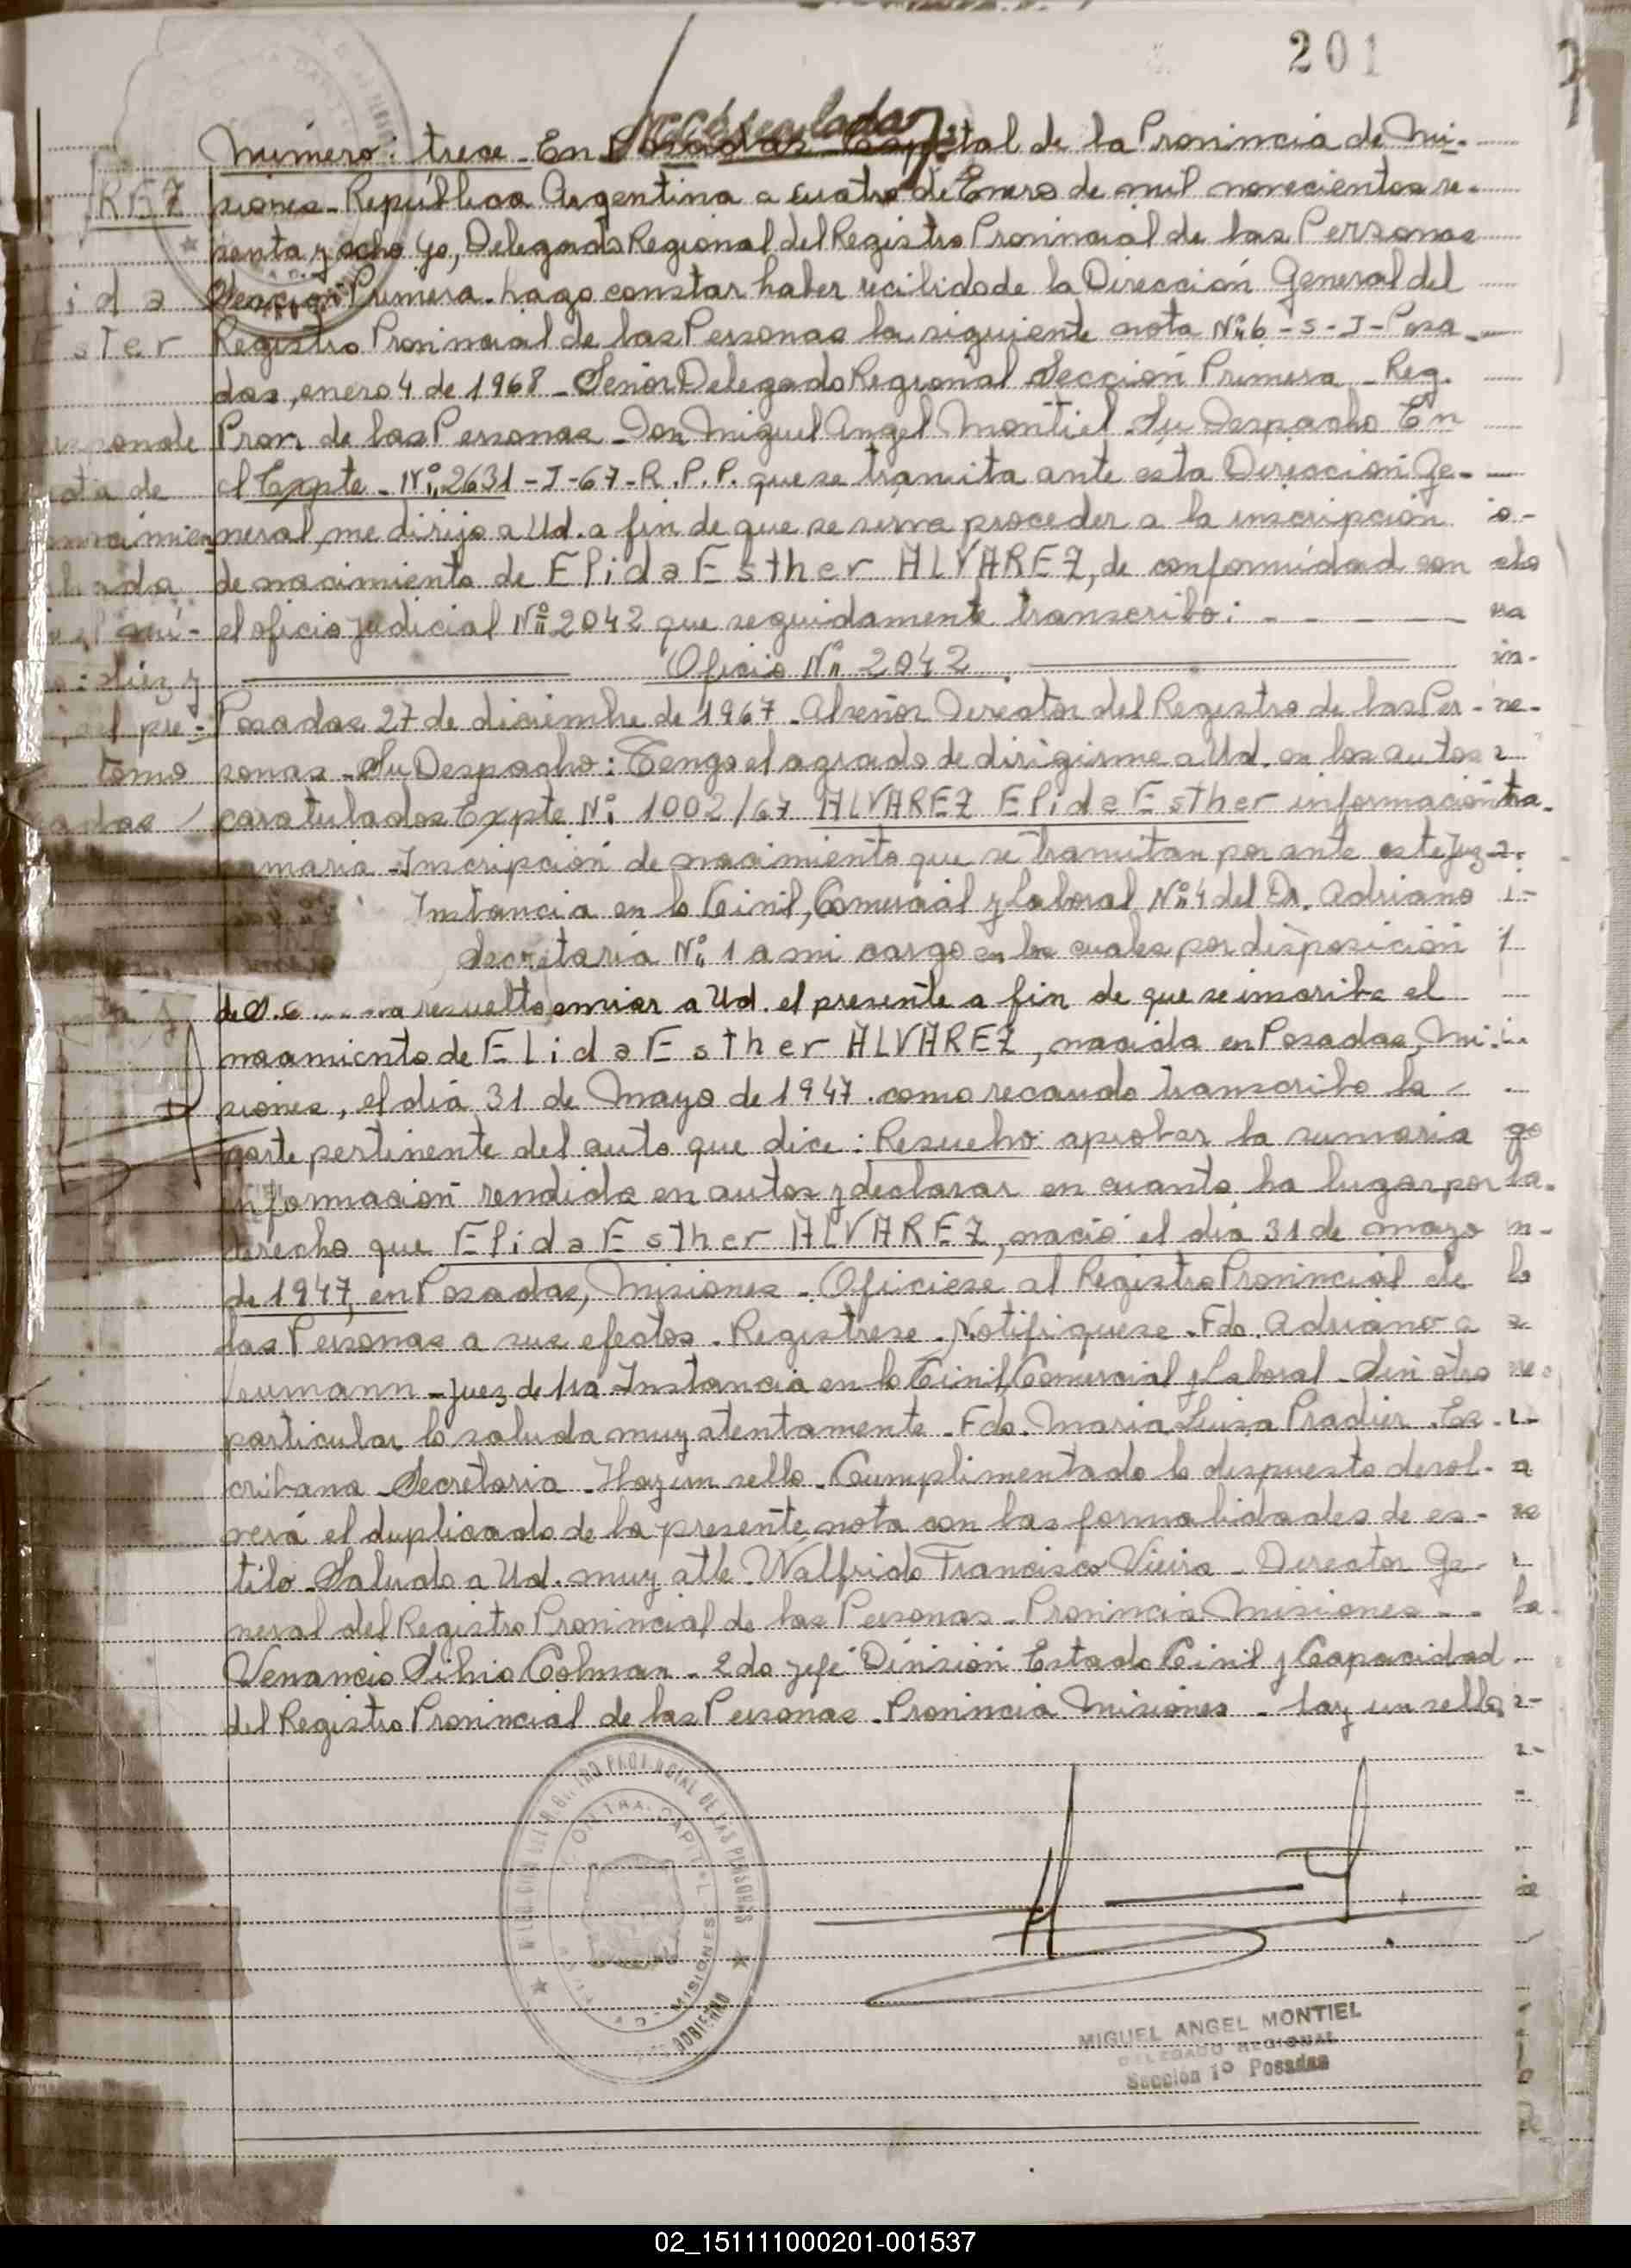 201
Microfilmada
Número: trece. En Posadas Capital de la Provincia de Mi-
siones - República Argentina a cuatro de Enero de mil novecientos se-
senta y ocho Yo, Delegado Regional del Registro Provincial de las Personas
Sección Primera. hago constar haber recibido de la Dirección General del
Registro Provincial de las Personas la siguiente nota Nº 6 - S - J - Posa
das, enero 4 de 1968 - Señor Delegado Regional Sección Primera - Reg.
Prov. de las Personas - Don Miguel Angel Montiel. Su Despacho En
el Expte. Nº 2631 - J - 67 - R.P.P. que se tramita ante esta Dirección Ge-
neral, me dirijo a Ud. a fin de que se sirva proceder a la inscripción
de nacimiento de Elida Esther ALVAREZ, de conformidad con
el oficio judicial Nº 2042 que seguidamente transcribo: - - - -
Oficio Nº 2042
Posadas 27 de diciembre de 1967 - Al señor Director del Registro de las Per-
sonas - Su Despacho: Tengo el agrado de dirigirme a Ud. en los autos
caratulados Expte Nº 1002/67 ALVAREZ Elida Esther información
umaria - Inscripción de nacimiento que se tramitan por ante este Juz
Instancia en lo Civil, Comercial y Laboral Nº 4 del Dr. Adriano
Secretaria Nº 1 a mi cargo en los cuales por disposición
de S.S. resuelto enviar a Ud. el presente a fin de que se inscriba el
nacimiento de Elida Esther ALVAREZ, nacida en Posadas, Mi-
siones, el día 31 de Mayo de 1947. como recaudo transcribo la
parte pertinente del auto que dice: Resuelvo: aprobar la sumaria
información rendida en autos y declarar en cuanto ha lugar por
derecho que Elida Esther ALVAREZ, nació el día 31 de mayo
de 1947, en Posadas, Misiones - Oficiese al Registro Provincial de
las Personas a sus efectos - Registrese. Notifiquese. Fdo. Adriano
Leumann - Juez de 1ra Instancia en lo Civil, Comercial y Laboral - Sin otro
particular lo saluda muy atentamente. Fdo. Maria Luisa Pradier. Es-
cribana Secretaria - Hay un sello - Cumplimentado lo dispuesto devol-
verá el duplicado de la presente nota con las formalidades de es-
tilo. Saludo a Ud. muy atte. Walfrido Francisco Vieira - Director Ge
neral del Registro Provincial de las Personas - Provincia Misiones -
Venancio Silvio Colman - 2do Jefe División Estado Civil y Capacidad
del Registro Provincial de las Personas - Provincia Misiones - hay un sello
MIGUEL ANGEL MONTIEL
DELEGADO REGIONAL
Sección 1º Posadas
02_151111000201-001537